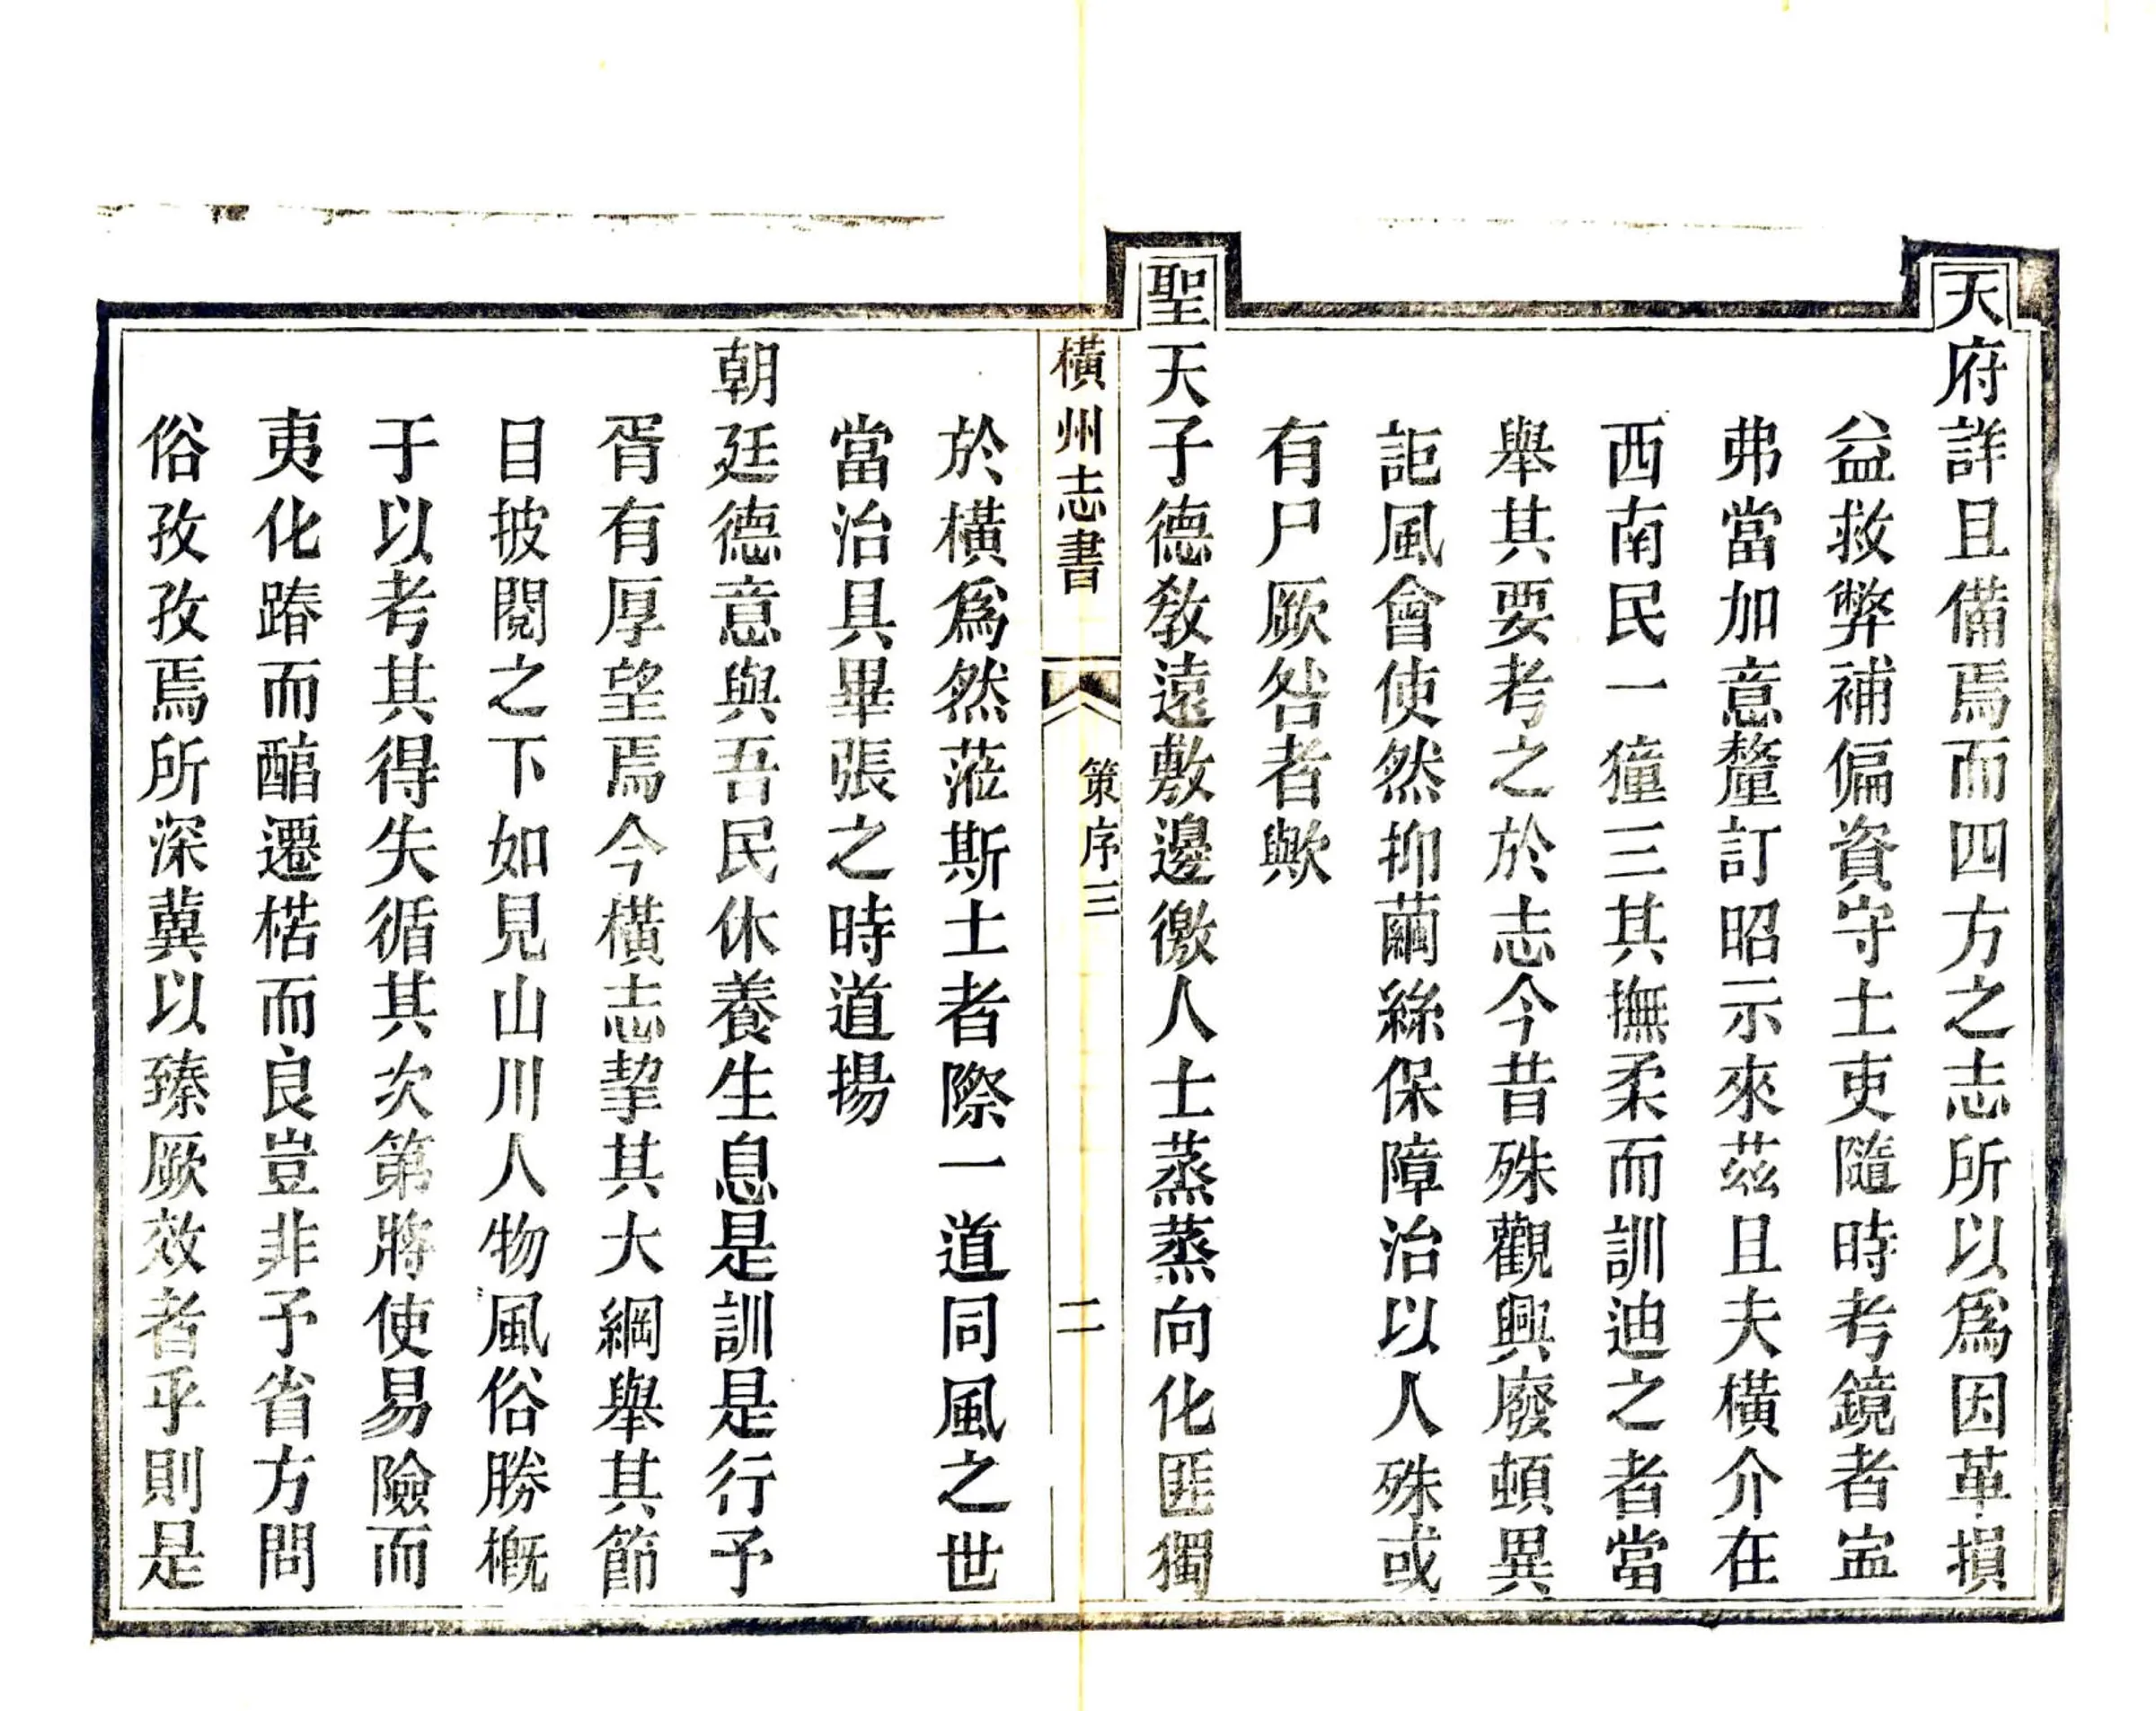 天府詳且備焉而四方之志所以爲因革損
益救弊補偏資守土吏隨時考鏡者盍
弗當加意釐訂昭示來茲且夫橫介在
西南民一獞三其撫柔而訓迪之者當
舉其要考之於志今昔殊觀興廢頓異
詎風會使然抑繭絲保障治以人殊或
有尸厥咎者歟
聖天子德敎遠敷邊徼人士蒸蒸向化匪獨
橫州志書
策序三
二
於橫爲然蒞斯土者際一道同風之世
當治具畢張之時道揚
朝廷德意與吾民休養生息是訓是行予
胥有厚望焉今橫志挈其大綱舉其節
目披閱之下如見山川人物風俗勝槪
于以考其得失循其次第將使易險而
夷化踳而醕遷楛而良豈非予省方問
俗孜孜焉所深冀以臻厥效者乎則是